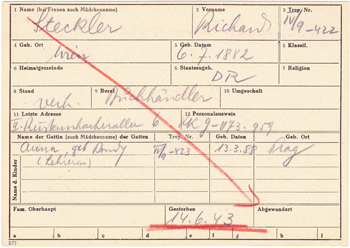 1 Name (bei Frauen auch Mädchenname) 2 Vorname 3 Trsp. Nr.
Steckler Richard IV/9-422
4 Geb. Ort 5 Geb. Datum 5 Klassif.
Wien 6.7.1882
6 Heimatgemeinde 6 Staatsang. 7 Religion
DR
8 Stand 9 Beruf 10 Umgeschult
verh. Buchhändler
11 Letzte Adresse 12 Personalausweis
II. 6 KK 9-073.959
Name der Gattin (auch Mädchenname) des Gatten Trsp. Nr. Geb. Datum Geb. Ort
Anna, geb. IV/9-423 13.3.88 Prag
Name d. Kinder
Fam. Oberhaupt Gestorben Abgewandert
14.6.43
a b c d e f g h i
277